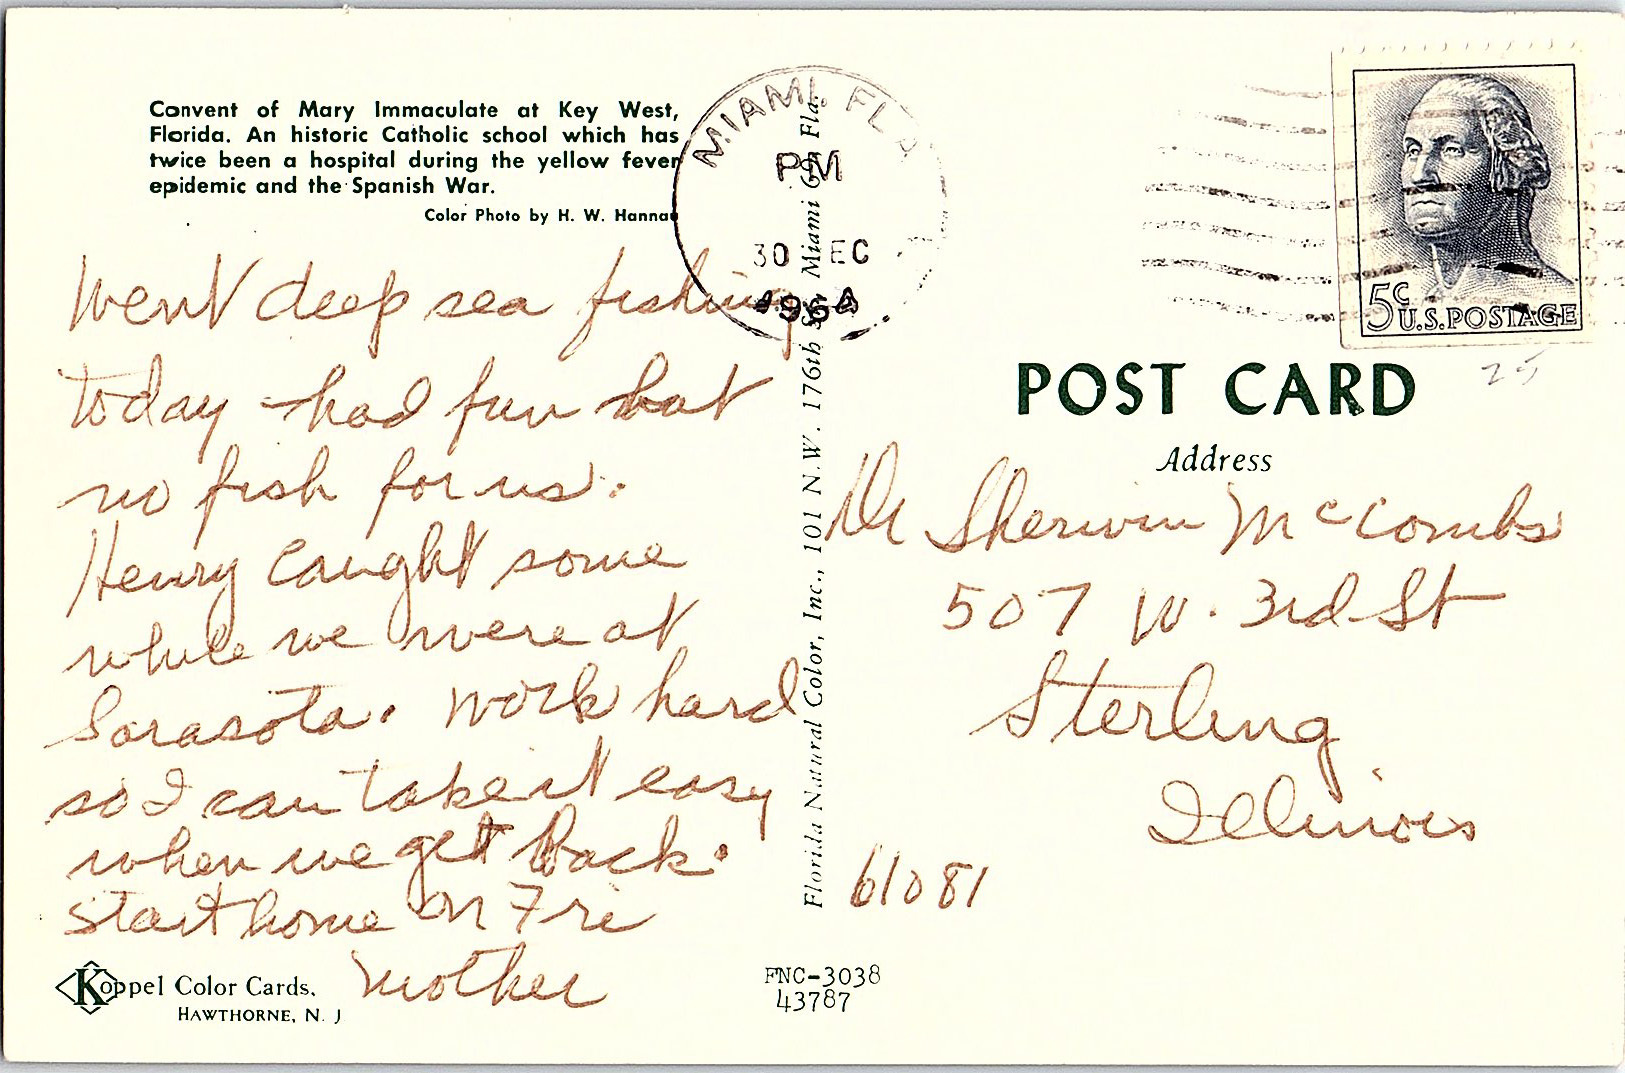 Convent of Mary Immaculate at Key West,
Florida. An historic Catholic school which has
twice been a hospital during the yellow fever
epidemic and the Spanish War.
Color Photo by H. W. Hannau
MIAMI, FLA
PM
30 EC
1964
5c U.S. POSTAGE
25
POST CARD
Address
Went deep sea fishing
today - had fun but
no fish for us.
Henry caught some
while we were at
Sarasota. Work hard
so I can take it easy
when we get back.
start home on Fri
Mother
Florida Natural Color, Inc., 101 N.W. 176th St. Miami 69, Fla.
Dr Sherwin McCombs
507 W. 3rd St
Sterling
Illinois
61081
Koppel Color Cards.
HAWTHORNE, N. J
FNC-3038
43787